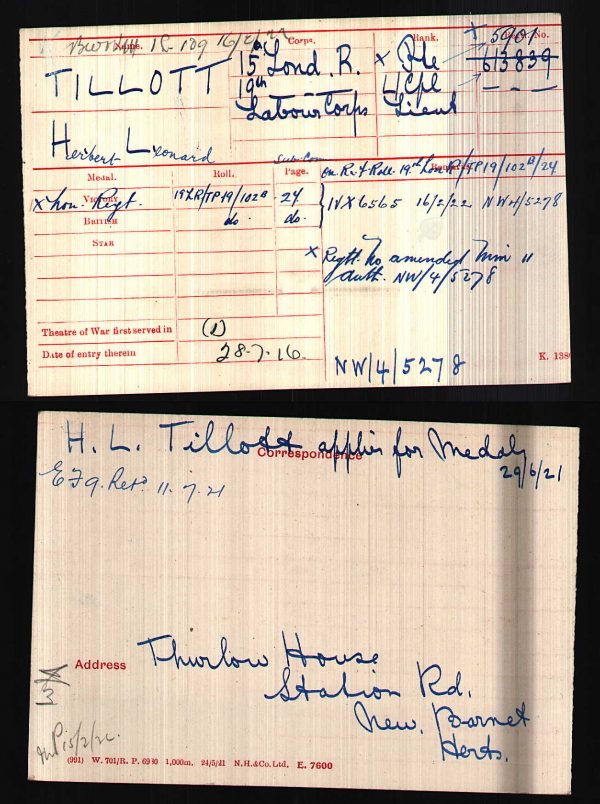 Name. Corps. Rank. Regtl. No.
16/2/22
TILLOTT 15th Lond. R. x Pte x 5901
613839
19th — L/Cpl " 
Labour Corps Lieut — — —
Herbert Leonard
on Re. & Roll. 19th Lon R/TP19/102B/24
Medal. Roll. Page. Remarks
Victory x Lon. Regt. 19LR/TP19/102B 24 IVX6565 16/2/22 NW/4/5278
British do. do.
Star
x Regtl. No amended Min 11
Auth. NW/4/5278
Theatre of War first served in (1)
Date of entry therein 28.7.16.
NW/4/5278 K. 1380
H. L. Tillott applies for Medals
Correspondence
29/6/21
EF9. Retd 11.7.21
Address Thurlow House
Station Rd.
New. Barnet
Herts.
(991) W. 701/R. P. 6930 1,000m. 24/5/21 N.H.&Co.Ltd. E. 7600